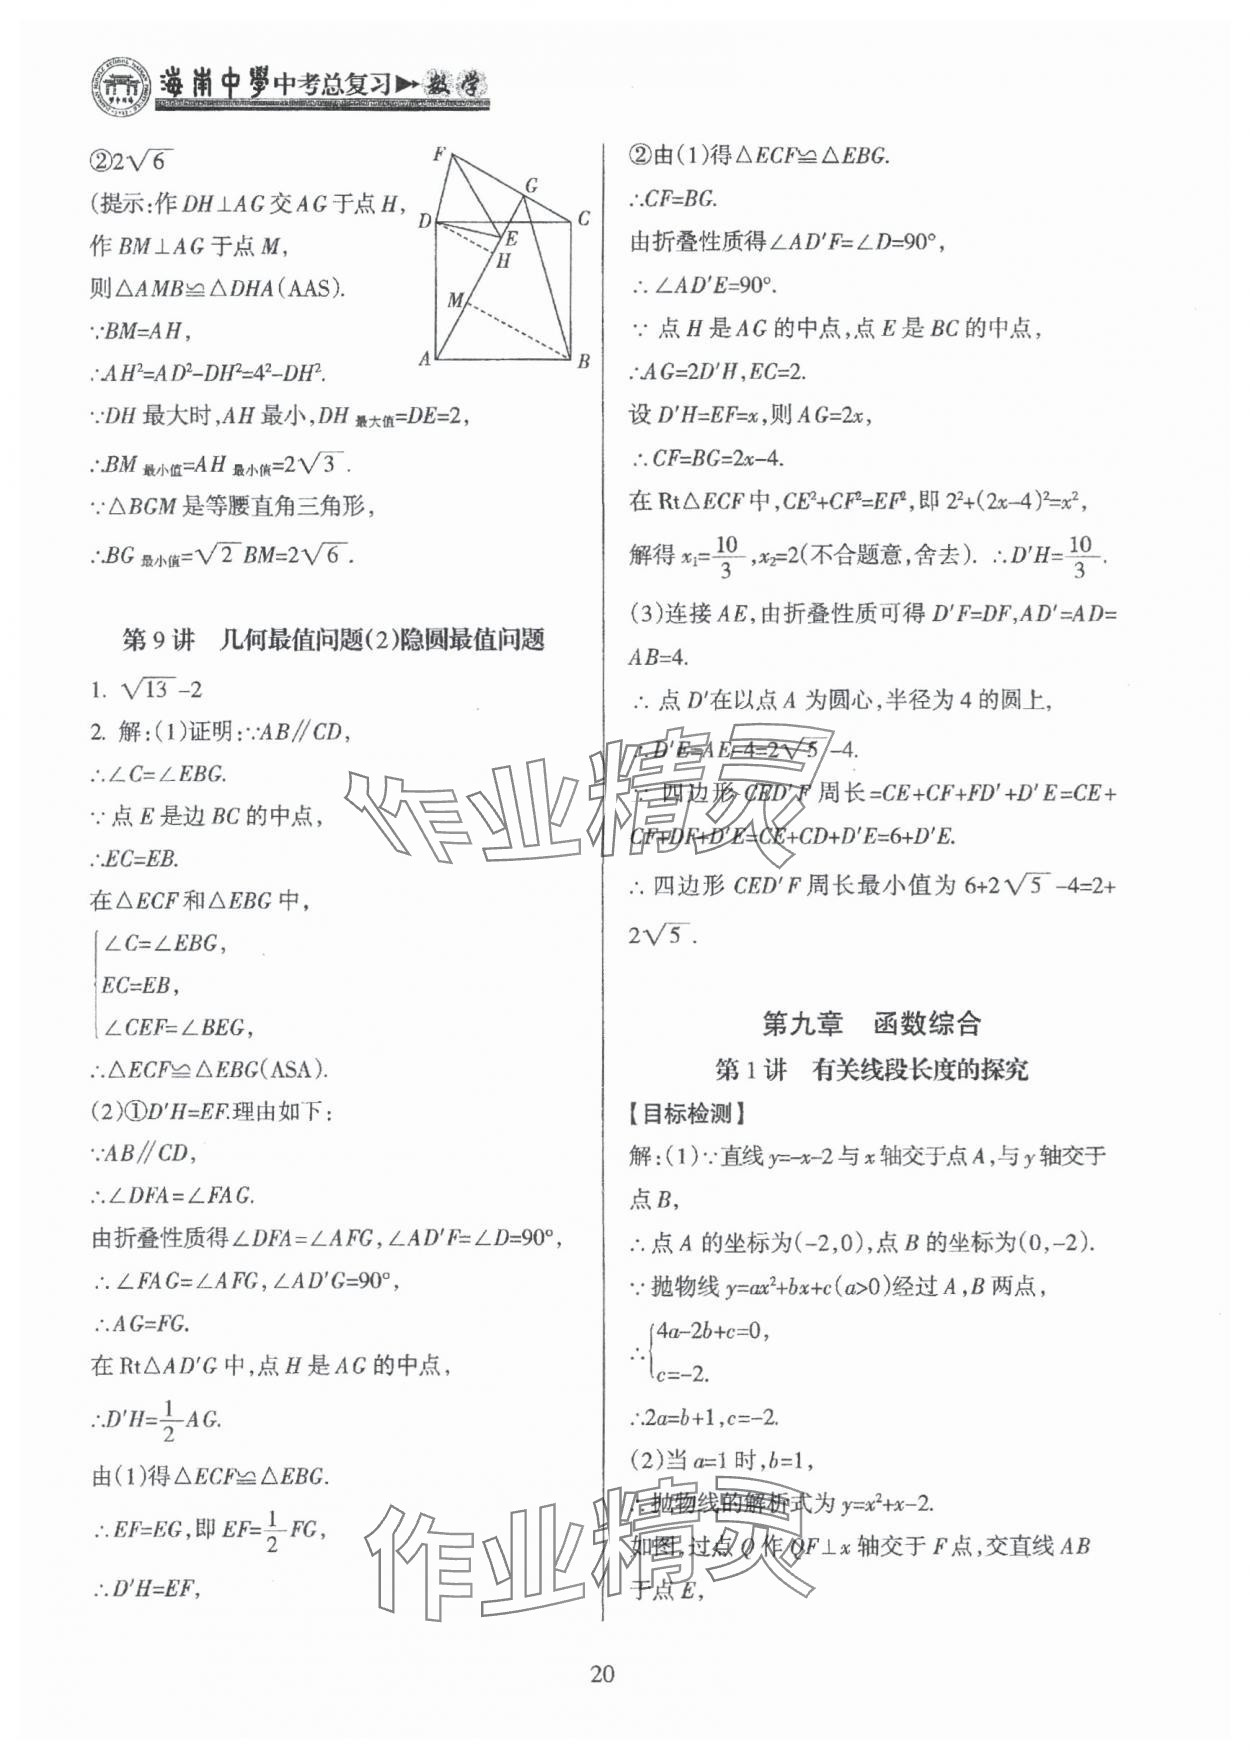 海南中學中考总复习 数学
②2√6
(提示:作DH⊥AG交AG于点H,
作BM⊥AG于点M,
则△AMB≌△DHA(AAS).
∵BM=AH,
∴AH²=AD²-DH²=4²-DH².
∵DH最大时,AH最小,DH最大值=DE=2,
∴BM最小值=AH最小值=2√3.
∵△BGM是等腰直角三角形,
∴BG最小值=√2BM=2√6.
F
G
D
C
E
H
M
A
B
第9讲 几何最值问题(2)隐圆最值问题
1. √13-2
2. 解:(1)证明:∵AB∥CD,
∴∠C=∠EBG.
∵点E是边BC的中点,
∴EC=EB.
在△ECF和△EBG中,
∠C=∠EBG,
EC=EB,
∠CEF=∠BEG,
∴△ECF≌△EBG(ASA).
(2)①D′H=EF.理由如下:
∵AB∥CD,
∴∠DFA=∠FAG.
由折叠性质得∠DFA=∠AFG,∠AD′F=∠D=90°,
∴∠FAG=∠AFG,∠AD′G=90°,
∴AG=FG.
在Rt△AD′G中,点H是AG的中点,
∴D′H=1/2AG.
由(1)得△ECF≌△EBG.
∴EF=EG,即EF=1/2FG,
∴D′H=EF,
②由(1)得△ECF≌△EBG.
∴CF=BG.
由折叠性质得∠AD′F=∠D=90°,
∴∠AD′E=90°.
∵点H是AG的中点,点E是BC的中点,
∴AG=2D′H,EC=2.
设D′H=EF=x,则AG=2x,
∴CF=BG=2x-4.
在Rt△ECF中,CE²+CF²=EF²,即2²+(2x-4)²=x²,
解得x₁=10/3,x₂=2(不合题意,舍去). ∴D′H=10/3.
(3)连接AE,由折叠性质可得D′F=DF,AD′=AD=
AB=4.
∴点D′在以点A为圆心,半径为4的圆上,
∴D′E=AE-4=2√5-4.
∵四边形CED′F周长=CE+CF+FD′+D′E=CE+
CF+DF+D′E=CE+CD+D′E=6+D′E.
∴四边形CED′F周长最小值为6+2√5-4=2+
2√5.
第九章 函数综合
第1讲 有关线段长度的探究
【目标检测】
解:(1)∵直线y=-x-2与x轴交于点A,与y轴交于
点B,
∴点A的坐标为(-2,0),点B的坐标为(0,-2).
∵抛物线y=ax²+bx+c(a>0)经过A,B两点,
∴
4a-2b+c=0,
c=-2.
∴2a=b+1,c=-2.
(2)当a=1时,b=1,
∴抛物线的解析式为y=x²+x-2.
如图,过点Q作QF⊥x轴交于F点,交直线AB
于点E,
作业精灵
作业精灵
20